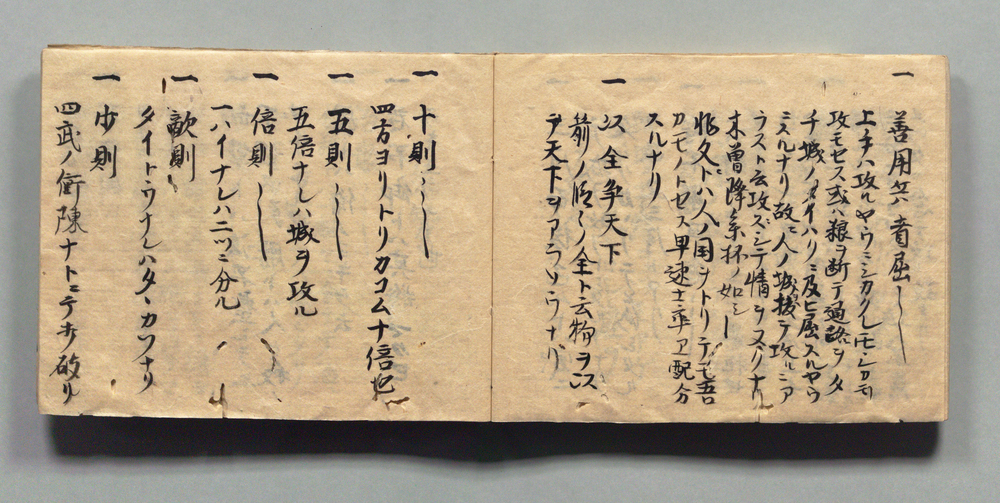 一 善用兵者屈
上手ハ攻ルヤウニシカクレ𪜈シカモ
攻モセス或ハ粮ヲ断テ通路ヲタ
チ城ノタイハリニ及ヒ屈スルヤウ
ニスルナリ故ニ人ノ城抜テ攻ルニア
ラストム攻ズシテ情ヲスクナ
末曽降糸杯ノ如シ
非久トハ人ノ国ヲトリテモ吾
カモノトセス早速士卒ヱ配分
スルナリ
一 以全争天下
前ノ段〻ノ全ト云物ヲ以
テ天下ヲアラソウナリ
一 十則
四方ヨリトリカコムナ倍也
一 五則
五倍ナレハ城ヲ攻ル
一 倍則
一ハイナレハ二ツニ分ル
一 敵則
タイトウナレハタヽカウナリ
一 少則
四武ノ衝陳ナトニテホ破リ